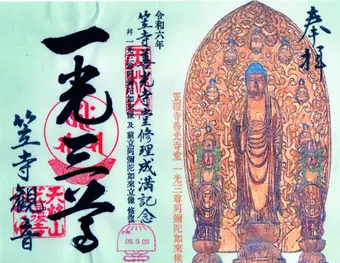 奉拝
笠覆寺善光寺堂 一光三尊阿彌陀如来像
令和六年
笠寺善光寺堂修理成満記念
一光三尊
笠寺観音